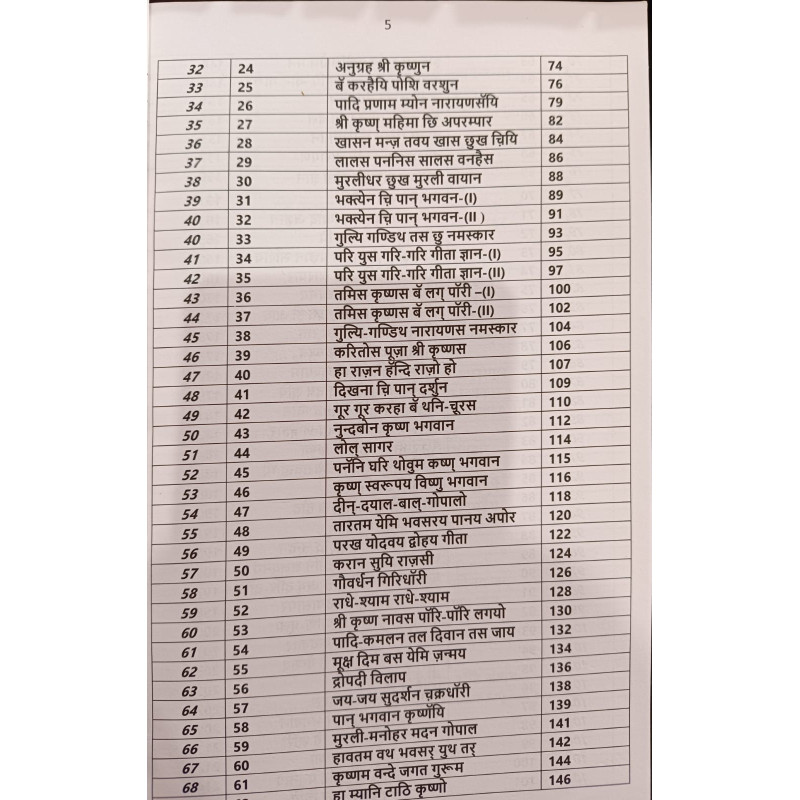 5
32 24 अनुग्रह श्री कृष्णुन 74
33 25 बॅ करहैयि पोशि वरशुन 76
34 26 पादि प्रणाम म्योन नारायणसॅयि 79
35 27 श्री कृष्ण् महिमा छि अपरम्पार 82
36 28 खासन मन्ज़ तवय खास छुख च़ियि 84
37 29 लालस पननिस सालस वनहैस 86
38 30 मुरलीधर छुख मुरली वायान 88
39 31 भक्त्येन च़ि पान् भगवन-(I) 89
40 32 भक्त्येन च़ि पान् भगवन-(II ) 91
40 33 गुल्यि गण्डिथ तस छु नमस्कार 93
41 34 परि युस गरि-गरि गीता ज्ञान-(I) 95
42 35 परि युस गरि-गरि गीता ज्ञान-(II) 97
43 36 तमिस कृष्णस बॅ लग् पॉरी –(I) 100
44 37 तमिस कृष्णस बॅ लग् पॉरी-(II) 102
45 38 गुल्यि-गण्डिथ नारायणस नमस्कार 104
46 39 करितोस पूज़ा श्री कृष्णस 106
47 40 हा राज़न हॅन्दि राज़ो हो 107
48 41 दिखना च़ि पान् दर्शुन 109
49 42 गूर गूर करहा बॅ थनि-चूरस 110
50 43 नुन्दबोन कृष्ण भगवान 112
51 44 लोल् सागर 114
52 45 पनॅनि घरि थोवुम कष्ण् भगवान 115
53 46 कृष्ण् स्वरूपय विष्णु भगवान 116
54 47 दीन्-दयाल-बाल्-गोपालो 118
55 48 तारतम येमि भवसरय पानय अपोर 120
56 49 परख योदवय द्वोहय गीता 122
57 50 करान सुयि राज़सी 124
58 51 गौवर्धन गिरिधॉरी 126
59 52 राधे-श्याम राधे-श्याम 128
60 53 श्री कृष्ण नावस पॉरि-पॉरि लगयो 130
61 54 पादि-कमलन तल दिवान तस जाय 132
62 55 मूक्ष दिम बस येमि ज़न्मय 134
63 56 द्रोपदी विलाप 136
64 57 जय-जय सुदर्शन च़क्रधॉरी 138
65 58 पान् भगवान कृष्णॅयि 139
66 59 मुरली-मनोहर मदन गोपाल 141
67 60 हावतम वथ भवसर् युथ तर् 142
68 61 कृष्णम वन्दे जगत गुरूम 144
हा म्यानि टाठि कृष्णो 146